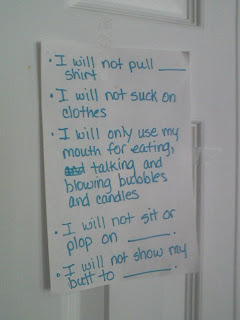 • I will not pull ____
shirt
• I will not suck on
clothes
• I will only use my
mouth for eating,
talking and
blowing bubbles
and candles
• I will not sit or
plop on ____.
• I will not show my
butt to ____.